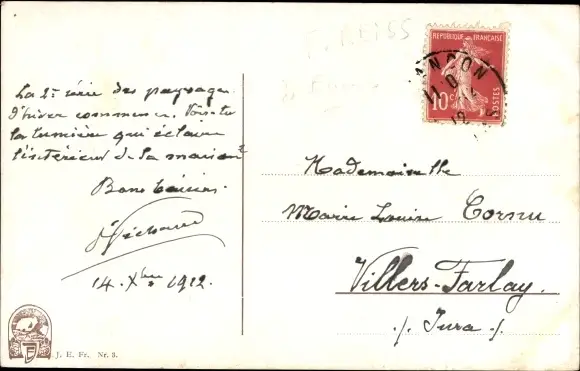 La 2e série des paysages
d'hiver commence. Vois-tu
la lumière qui éclaire
l'intérieur de la maison?
Bons baisers.
14. Xbre 1912.
J. E. Fr. Nr. 3.
F. REISS
REPUBLIQUE FRANÇAISE
10c
POSTES
12
Mademoiselle
Marie Louise Cornu
Villers-Farlay.
./. Jura ./.